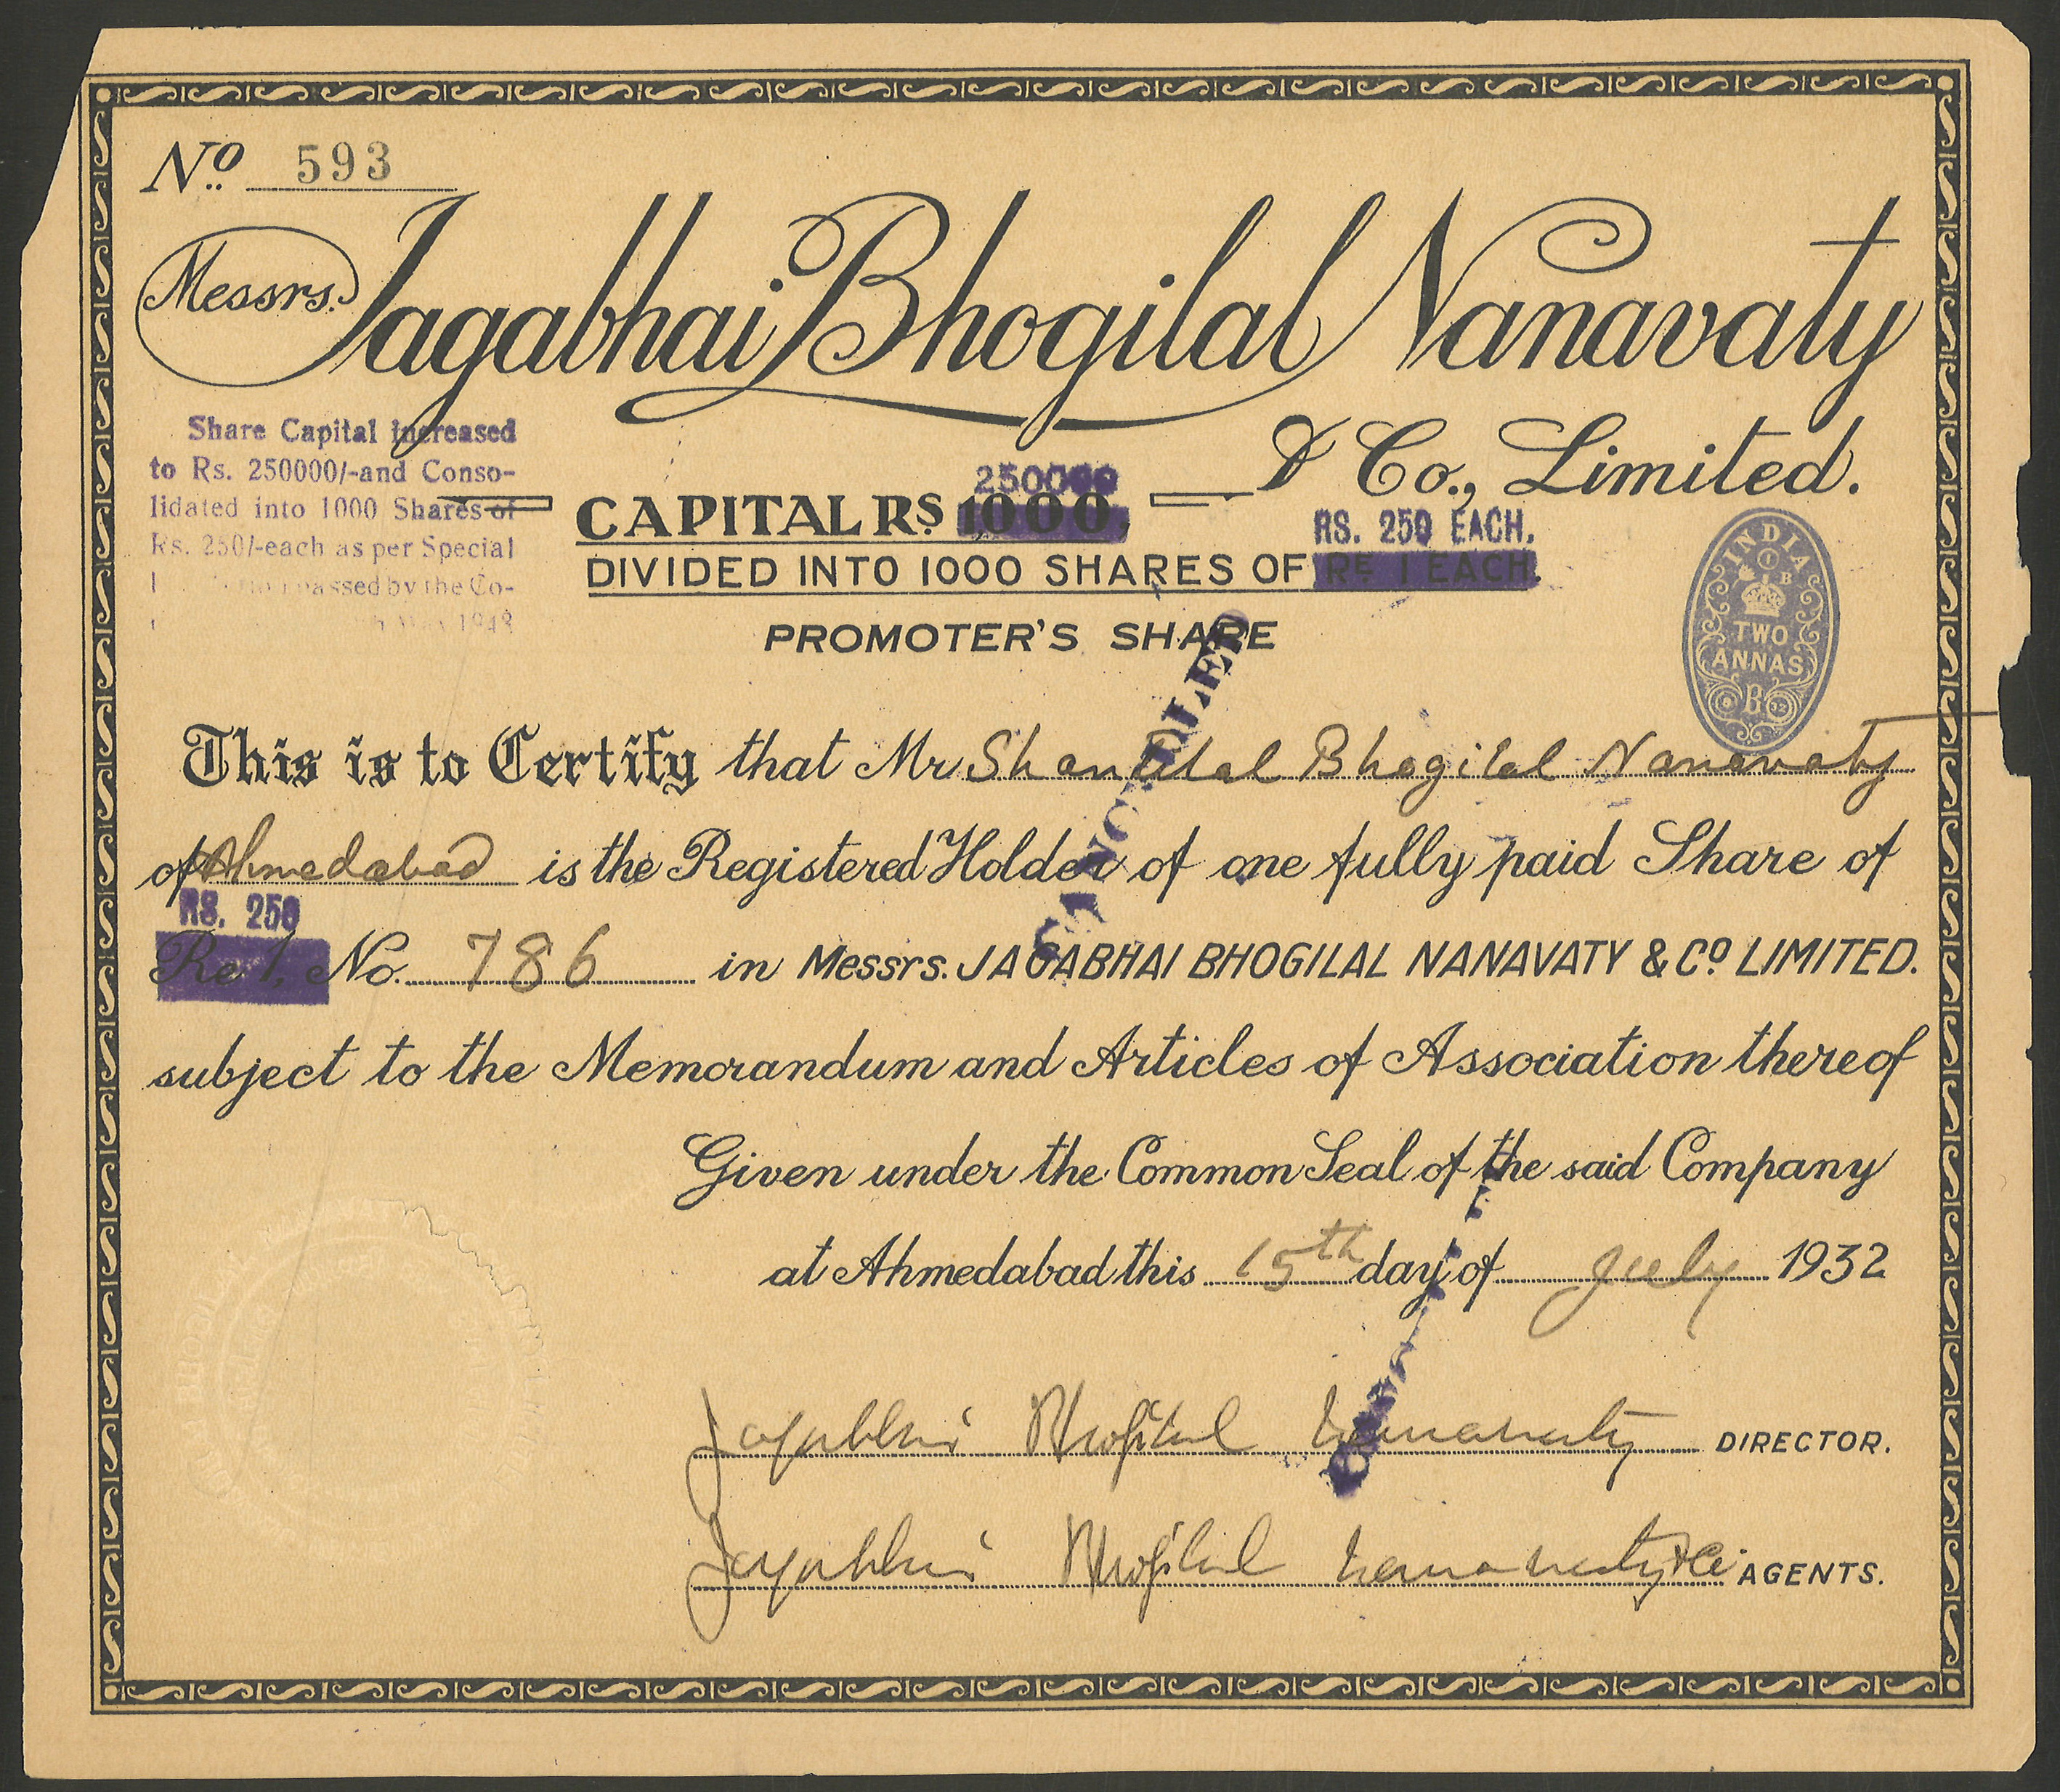 No. 593
Messrs. Jagabhai Bhogilal Nanavaty
& Co., Limited.
Share Capital Increased
to Rs. 250000/-and Conso-
lidated into 1000 Shares of
Rs. 250/-each as per Special
passed by the Co-
1948
250000
CAPITAL RS 1000,
RS. 250 EACH.
DIVIDED INTO 1000 SHARES OF RE 1 EACH.
PROMOTER'S SHARE
INDIA
TWO
ANNAS
B
CANCELLED
This is to Certify that Mr Shantilal Bhogilal Nanavaty
of Ahmedabad is the Registered Holder of one fully paid Share of
RS. 250
Re 1. No. 786 in Messrs. JAGABHAI BHOGILAL NANAVATY & CO LIMITED.
subject to the Memorandum and Articles of Association thereof
Given under the Common Seal of the said Company
at Ahmedabad this 15th day of July 1932
Jagabhai Bhogilal Nanavaty DIRECTOR.
Jagabhai Bhogilal Nanavaty & Co AGENTS.